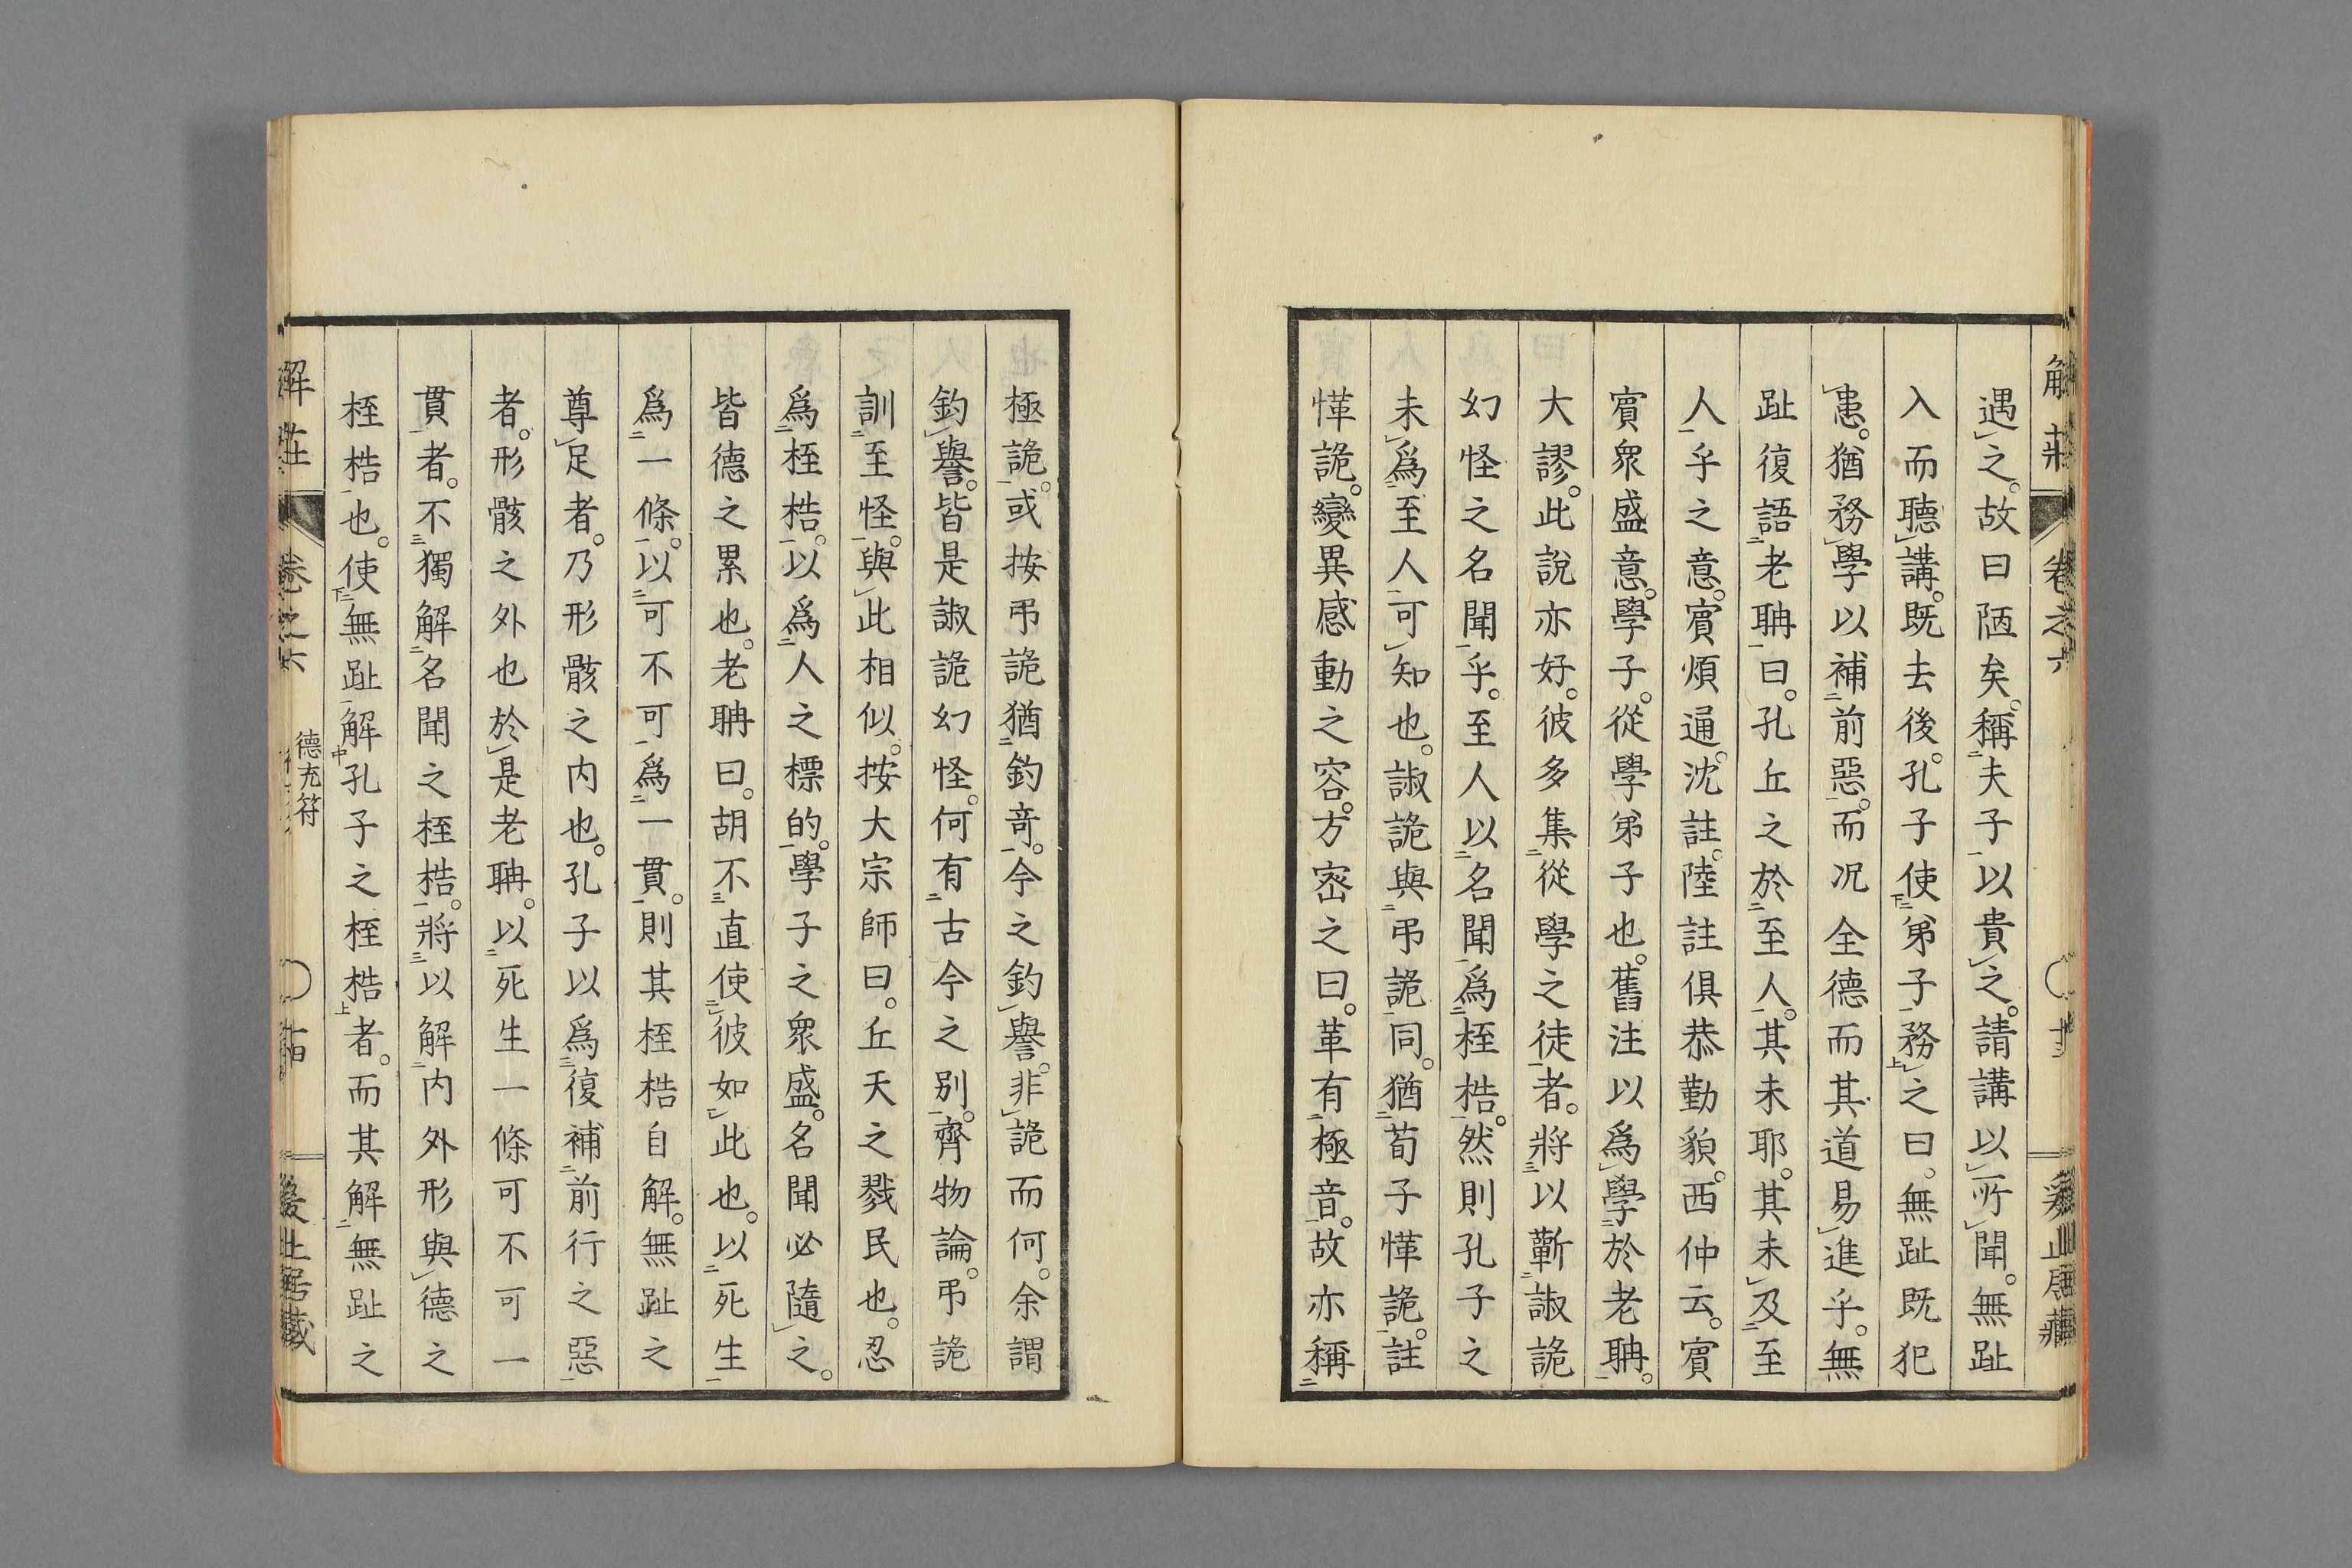 遇之。故曰陋矣。稱夫子以貴之。請講以所聞。無趾
入而聽講。既去後。孔子使弟子務之曰。無趾既犯
患。猶務學以補前惡。而况全德而其道易進乎。無
趾復語老聃曰。孔丘之於至人。其未耶。其未及至
人乎之意。賓煩通。沈註。陸註俱恭勤貌。西仲云。賓
賓衆盛意。學子。從學弟子也。舊注以爲學於老聃。
大謬。此說亦好。彼多集從學之徒者。將以蘄諔詭
幻怪之名聞乎。至人以名聞爲桎梏。然則孔子之
未爲至人可知也。諔詭與弔詭同。猶荀子愅詭。註
愅詭。變異感動之容。方密之曰。革有極音。故亦稱
極詭。或按弔詭猶釣奇。今之釣譽。非詭而何。余謂
釣譽。皆是諔詭幻怪。何有古今之別。齊物論。弔詭
訓至怪。與此相似。按大宗師曰。丘天之戮民也。忍
爲桎梏。以爲人之標的。學子之衆盛。名聞必隨之。
皆德之累也。老聃曰。胡不直使彼如此也。以死生
爲一條。以可不可爲一貫。則其桎梏自解。無趾之
尊足者。乃形骸之内也。孔子以爲復補前行之惡
者。形骸之外也於是老聃。以死生一條可不可一
貫者。不獨解名聞之桎梏。將以解内外形與德之
桎梏也。使無趾解孔子之桎梏者。而其解無趾之
解莊
卷之六
德充符